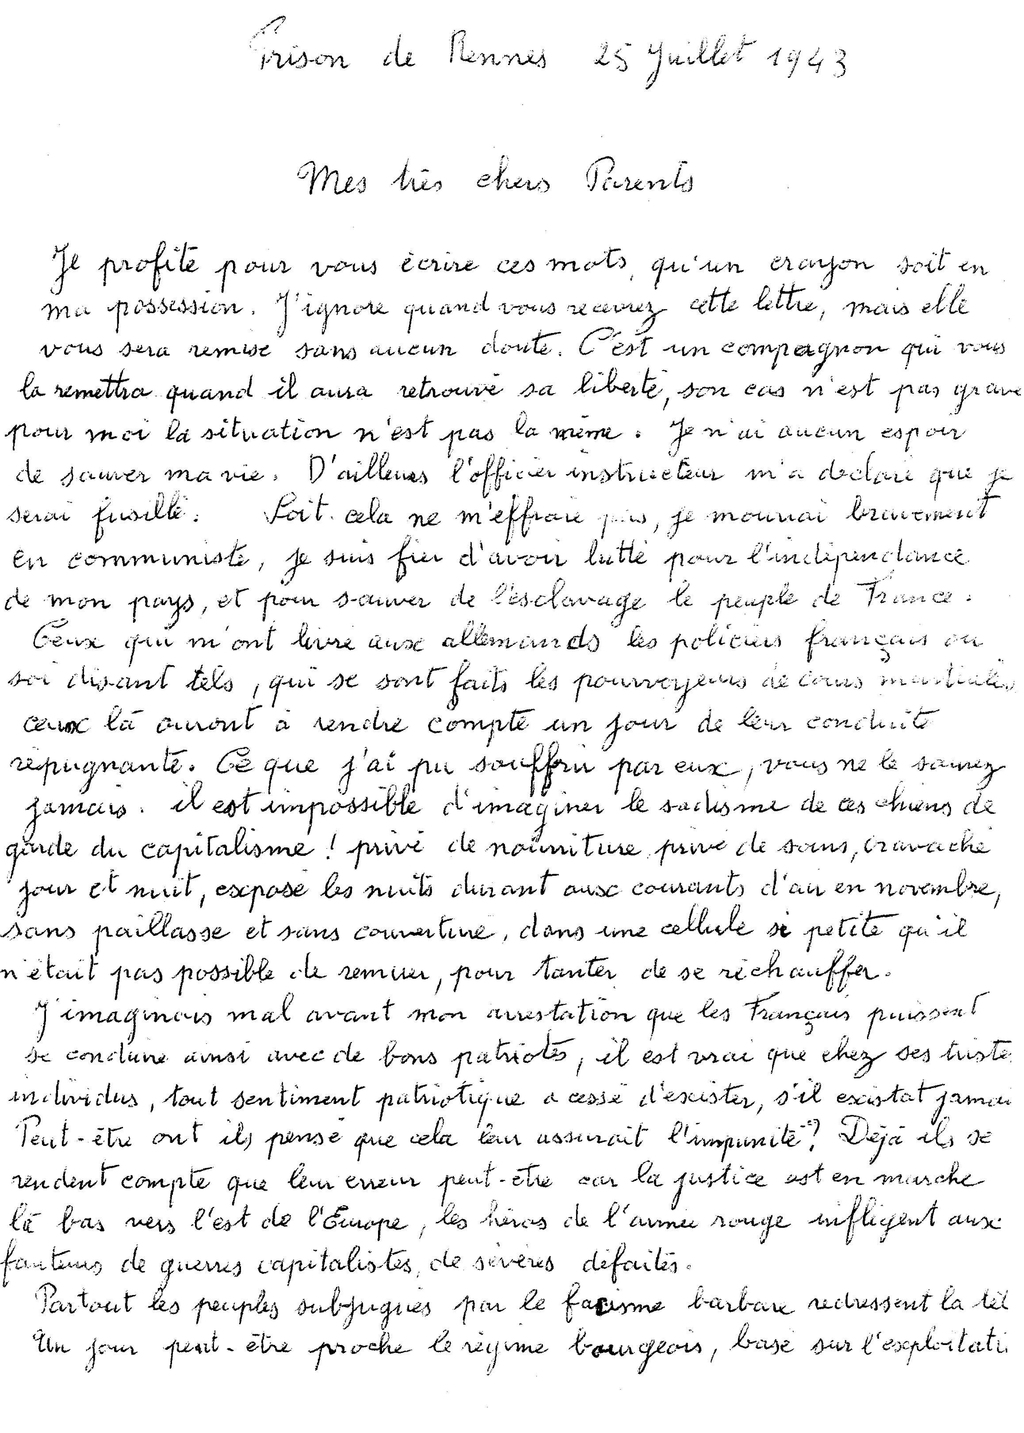 Prison de Rennes 25 Juillet 1943
Mes très chers Parents
Je profite pour vous écrire ces mots, qu'un crayon soit en
ma possession. J'ignore quand vous recevrez cette lettre, mais elle
vous sera remise sans aucun doute. C'est un compagnon qui vous
la remettra quand il aura retrouvé sa liberté, son cas n'est pas grave
pour moi la situation n'est pas la même. Je n'ai aucun espoir
de sauver ma vie. D'ailleurs l'officier instructeur m'a déclaré que je
serai fusillé. Soit. cela ne m'effraie pas, je mourrai bravement
en communiste, je suis fier d'avoir lutté pour l'indépendance
de mon pays, et pour sauver de l'esclavage le peuple de France.
Ceux qui m'ont livré aux allemands les policiers français ou
soi disant tels, qui se sont faits les pourvoyeurs de cours martiales
ceux là auront à rendre compte un jour de leur conduite
répugnante. Ce que j'ai pu souffrir par eux, vous ne le saurez
jamais. il est impossible d'imaginer le sadisme de ces chiens de
garde du capitalisme ! privé de nourriture, privé de soins, cravaché
jour et nuit, exposé les nuits durant aux courants d'air en novembre,
sans paillasse et sans couverture, dans une cellule si petite qu'il
n'était pas possible de remuer, pour tanter de se réchauffer.
J'imaginais mal avant mon arrestation que les Français puissent
se conduire ainsi avec de bons patriotes, il est vrai que chez ses triste
individus, tout sentiment patriotique a cessé d'exister, s'il existat jamai
Peut-être ont ils pensé que cela leur assurait l'impunité ? Déjà ils se
rendent compte que leur erreur peut-être car la justice est en marche
là bas vers l'est de l'Europe, les héros de l'armée rouge infligent aux
fauteurs de guerres capitalistes, de sévères défaites.
Partout les peuples subjugués par le facisme barbare redressent la têt
Un jour peut-être proche le régime bourgeois, basé sur l'exploitati